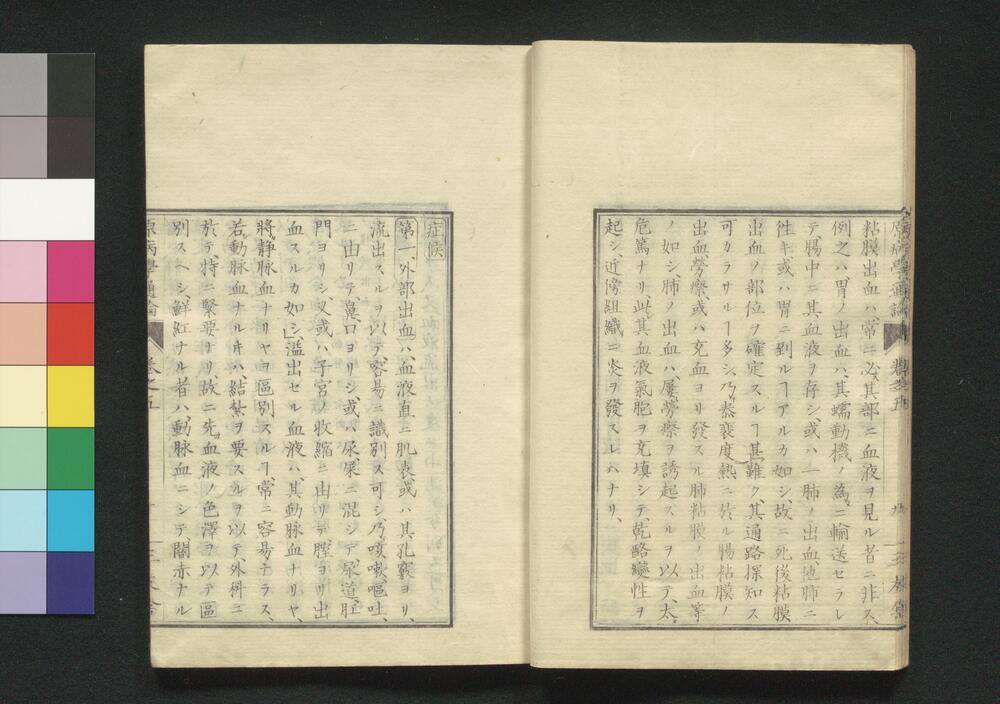 原病學通論 卷之五
粘膜出血ハ、常ニ必其部ニ血液ヲ見ル者ニ非ス、
例之ハ、胃ノ出血ハ、其蠕動機ノ為ニ輸送セラレ
テ腸中ニ其血液ヲ存シ、或ハ一肺ノ出血他肺ニ
徃キ或ハ胃ニ到ルヿアルカ如シ、故ニ死後粘膜
出血ノ部位ヲ確定スルヿ甚難ク、其通路探知ス
可カラサルヿ多シ、乃恭裵度熱ニ於ル腸粘膜ノ
出血勞瘵或ハ充血ヨリ發スル肺粘膜ノ出血等
ノ如シ、肺ノ出血ハ、屢勞瘵ヲ誘起スルヲ以テ、太
危篤ナリ、此其血液氣胞ヲ充填シテ、乾酪變性ヲ
起シ、近傍組織ニ炎ヲ發スレハナリ、
症候
第一、外部出血ハ、血液直ニ肌表或ハ其孔竅ヨリ、
流出スルヲ以テ、容易ニ識別ス可シ、乃咳嗽嘔吐、
ニ由リテ鼻、口ヨリシ、或ハ尿屎ニ混シテ尿道、肛
門ヨリシ、又或ハ子宮ノ收縮ニ由リテ膣ヨリ出
血スルカ如シ、溢出セル血液ハ、其動脉血ナリヤ、
將靜脉血ナリヤヲ區別スルヿ、常ニ容易ナラス、
若動脉血ナルキハ、結紮ヲ要スルヲ以テ、外科ニ
於テ、特ニ緊要ナリ、故ニ先血液ノ色澤ヲ以テ區
別スヘシ、鮮紅ナル者ハ動脉血ニシテ闇赤ナル
原病學通論 卷之五